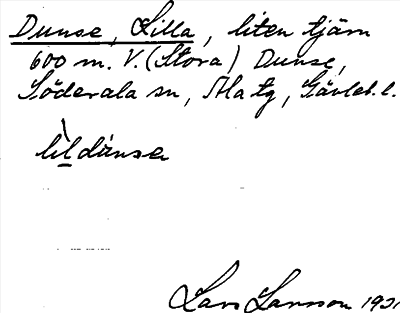 Dunse, Lilla, liten tjärn
600 m. V. (Stora) Dunse,
Söderala sn, Ala tg, Gävleb. l.
lìldúnsen
Lars Larsson 1931